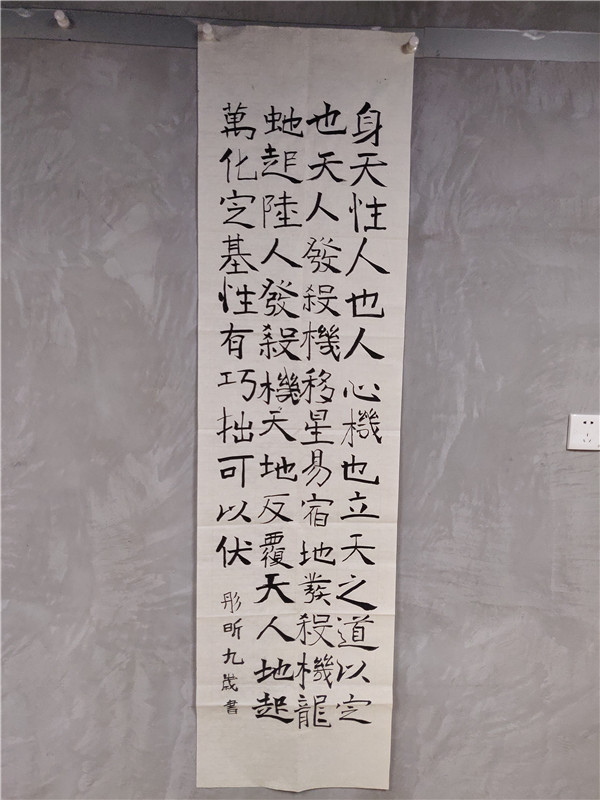 身天性人也人心機也立天之道以定
也天人發殺機移星易宿地發殺機龍
虵起陸人發殺機天地反覆天人地起
萬化定基性有巧拙可以伏
彤昕九歲書